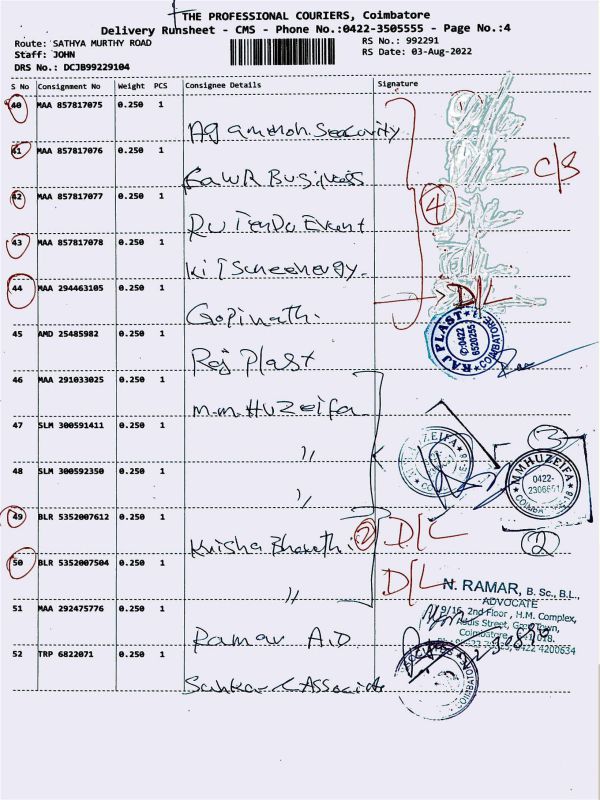 THE PROFESSIONAL COURIERS, Coimbatore
Delivery Runsheet - CMS - Phone No.:0422-3505555 - Page No.:4
Route: SATHYA MURTHY ROAD
Staff: JOHN
DRS No.: DCJB99229104
RS No.: 992291
RS Date: 03-Aug-2022
S No Consignment No Weight PCS Consignee Details Signature
40 MAA 857817075 0.250 1
41 MAA 857817076 0.250 1
BaWR Business
42 MAA 857817077 0.250 1
Event
43 MAA 857817078 0.250 1
4
C/S
44 MAA 294463105 0.250 1
Gopinath.
D/L
45 AMD 25485982 0.250 1
Raj Plast
RAJ PLAST
✆:0422
6520255
COIMBATORE
46 MAA 291033025 0.250 1
M.M.HUZEIFA
47 SLM 300591411 0.250 1
"
48 SLM 300592350 0.250 1
"
MMHUZEIFA
0422-
3
2
49 BLR 5352007612 0.250 1
Krisha Bharathi
2
D/L
50 BLR 5352007504 0.250 1
"
D/L
N. RAMAR, B. Sc., B.L.,
ADVOCATE
9/16, 2nd Floor, H.M. Complex,
51 MAA 292475776 0.250 1
Ramar A.D
52 TRP 6822071 0.250 1
Sankar & Associate